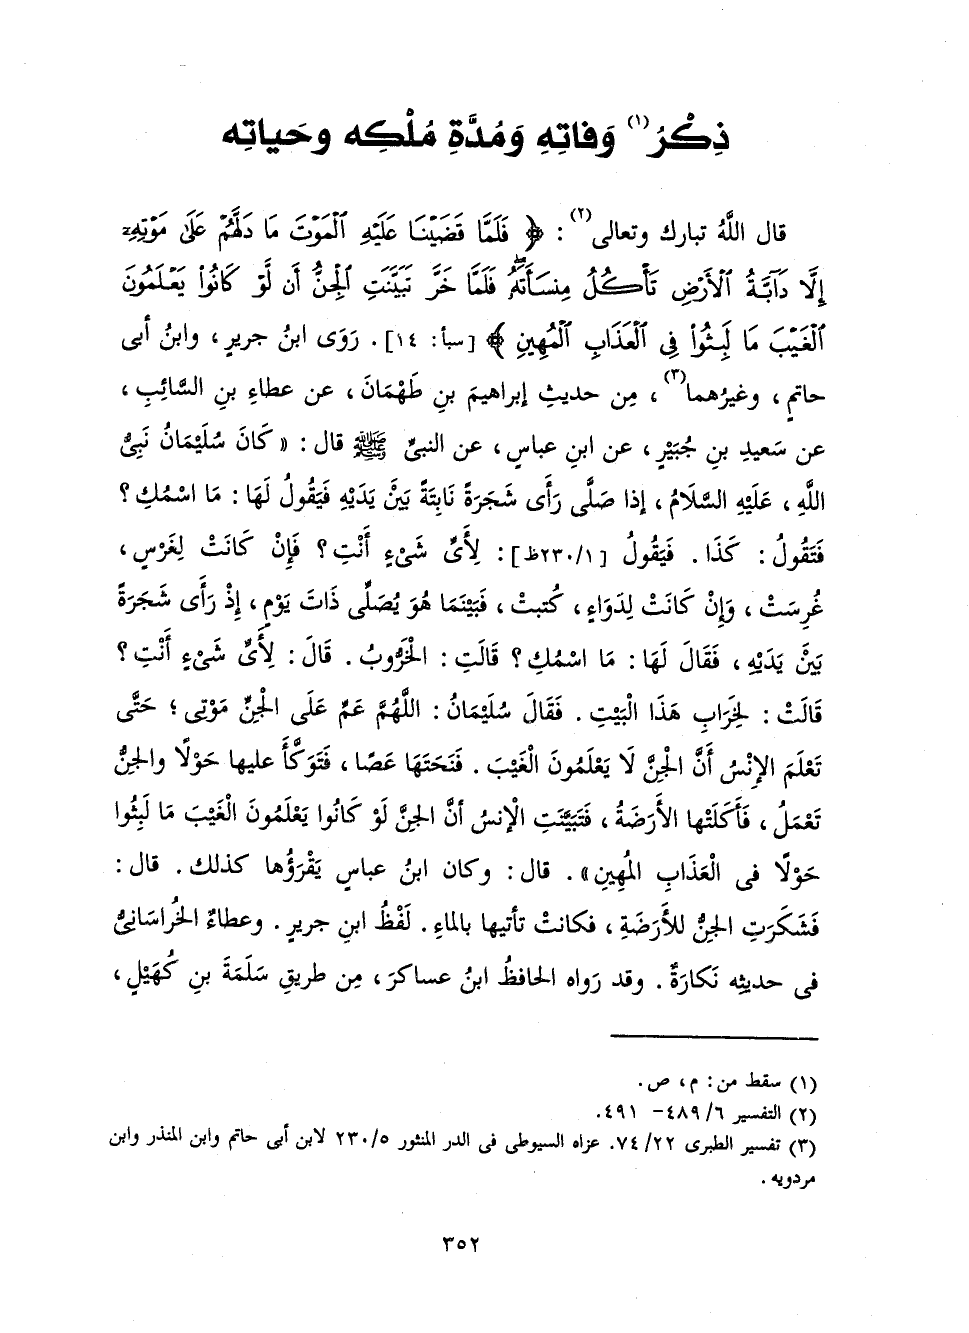 ذِكْرُ(١) وَفاتِهِ وَمُدَّةِ مُلْكِه وحَياتِه
قال اللَّهُ تبارك وتعالى(٢) : ﴿ فَلَمَّا قَضَيْنَا عَلَيْهِ ٱلْمَوْتَ مَا دَلَّهُمْ عَلَىٰ مَوْتِهِۦٓ
إِلَّا دَآبَّةُ ٱلْأَرْضِ تَأْكُلُ مِنسَأَتَهُۥۖ فَلَمَّا خَرَّ تَبَيَّنَتِ ٱلْجِنُّ أَن لَّوْ كَانُوا۟ يَعْلَمُونَ
ٱلْغَيْبَ مَا لَبِثُوا۟ فِى ٱلْعَذَابِ ٱلْمُهِينِ ﴾ [سبأ: ١٤]. رَوَى ابنُ جريرٍ، وابنُ أبى
حاتمٍ، وغيرُهما(٣)، مِن حديثِ إبراهيمَ بنِ طَهْمَانَ، عن عطاءِ بنِ السَّائِبِ،
عن سَعيدِ بنِ جُبَيْرٍ، عن ابنِ عباسٍ، عن النبىِّ ﷺ قال: « كَانَ سُلَيْمَانُ نَبِىُّ
اللَّهِ، عَلَيْهِ السَّلَامُ، إذا صَلَّى رَأَى شَجَرَةً نَابِتَةً بَيْنَ يَدَيْهِ فَيَقُولُ لَهَا: مَا اسْمُكِ؟
فَتَقُولُ: كَذَا. فَيَقُولُ [٢٣٠/١ظ]: لِأَىِّ شَىْءٍ أَنْتِ؟ فَإِنْ كَانَتْ لِغَرْسٍ،
غُرِسَتْ، وَإِنْ كَانَتْ لِدَوَاءٍ، كُتبتْ، فَبَيْنَمَا هُوَ يُصَلِّى ذَاتَ يَوْمٍ، إِذْ رَأَى شَجَرَةً
بَيْنَ يَدَيْهِ، فَقَالَ لَهَا: مَا اسْمُكِ؟ قَالَتِ: الخَرُّوبُ. قَالَ: لِأَىِّ شَىْءٍ أَنْتِ؟
قَالَتْ: لِخَرَابِ هَذَا الْبَيْتِ. فَقَالَ سُلَيْمَانُ: اللَّهُمَّ عَمِّ عَلَى الْجِنِّ مَوْتِى؛ حَتَّى
تَعْلَمَ الإِنْسُ أَنَّ الجِنَّ لَا يَعْلَمُونَ الْغَيْبَ. فَنَحَتَهَا عَصًا، فَتَوَكَّأَ عليها حَوْلًا والجِنُّ
تَعْمَلُ، فَأَكَلَتْها الأَرَضَةُ، فَتَبَيَّنَتِ الْإنسُ أنَّ الجِنَّ لَوْ كَانُوا يَعْلَمُونَ الْغَيْبَ مَا لَبِثُوا
حَوْلًا فى الْعَذَابِ المُهِينِ». قال: وكان ابنُ عباسٍ يَقْرَؤُها كذلك. قال:
فَشَكَرَتِ الجِنُّ للأَرَضَةِ، فكانتْ تأتيها بالماءِ. لَفْظُ ابنِ جريرٍ. وعطاءٌ الخُراسَانِىُّ
فى حديثِه نَكارَةٌ. وقد رَواه الحافظُ ابنُ عساكرَ، مِن طريقِ سَلَمَةَ بنِ كُهَيْلٍ،
(١) سقط من: م، ص.
(٢) التفسير ٤٨٩/٦- ٤٩١.
(٣) تفسير الطبرى ٧٤/٢٢. عزاه السيوطى فى الدر المنثور ٢٣٠/٥ لابن أبى حاتم وابن المنذر وابن
مردويه.
٣٥٢